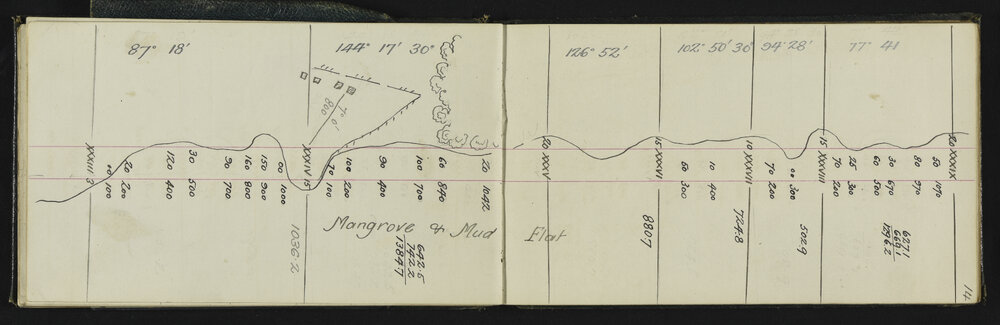 87° 18'
144° 17' 30"
126° 52'
102° 50' 30"
94° 28'
77° 41
70° 0'
800
XXXIII 3
00 100
20 200
120 400
30 500
30 700
160 800
150 900
00 1000
1036.2
XXXIV 15
70 100
100 200
90 400
100 700
60 840
20 1042
Mangrove & Mud Flat
642.5
742.2
1384.7
20 XXXV
15 XXXVI
60 300
10 400
880.7
10 XXXVII
70 200
00 300
724.8
502.9
15 XXXVIII
70 200
25 300
60 500
30 670
80 970
50 1070
20 XXXIX
627.1
669.1
1296.2
14